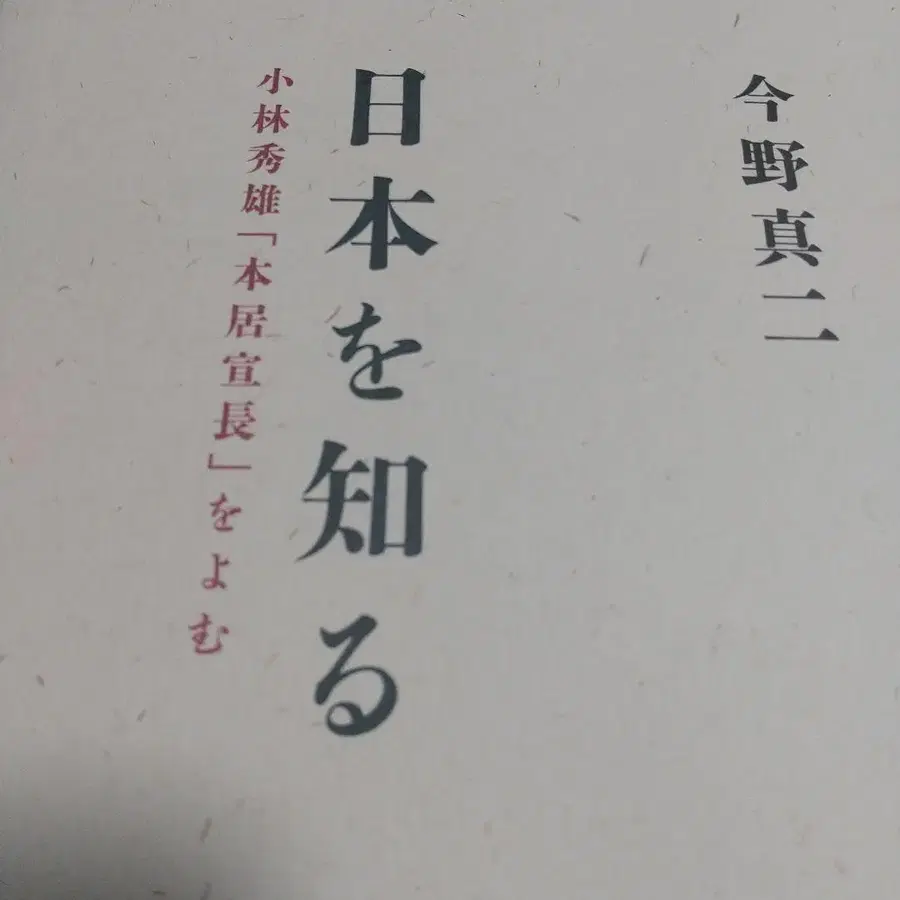 今野真二
日本を知る
小林秀雄「本居宣長」をよむ